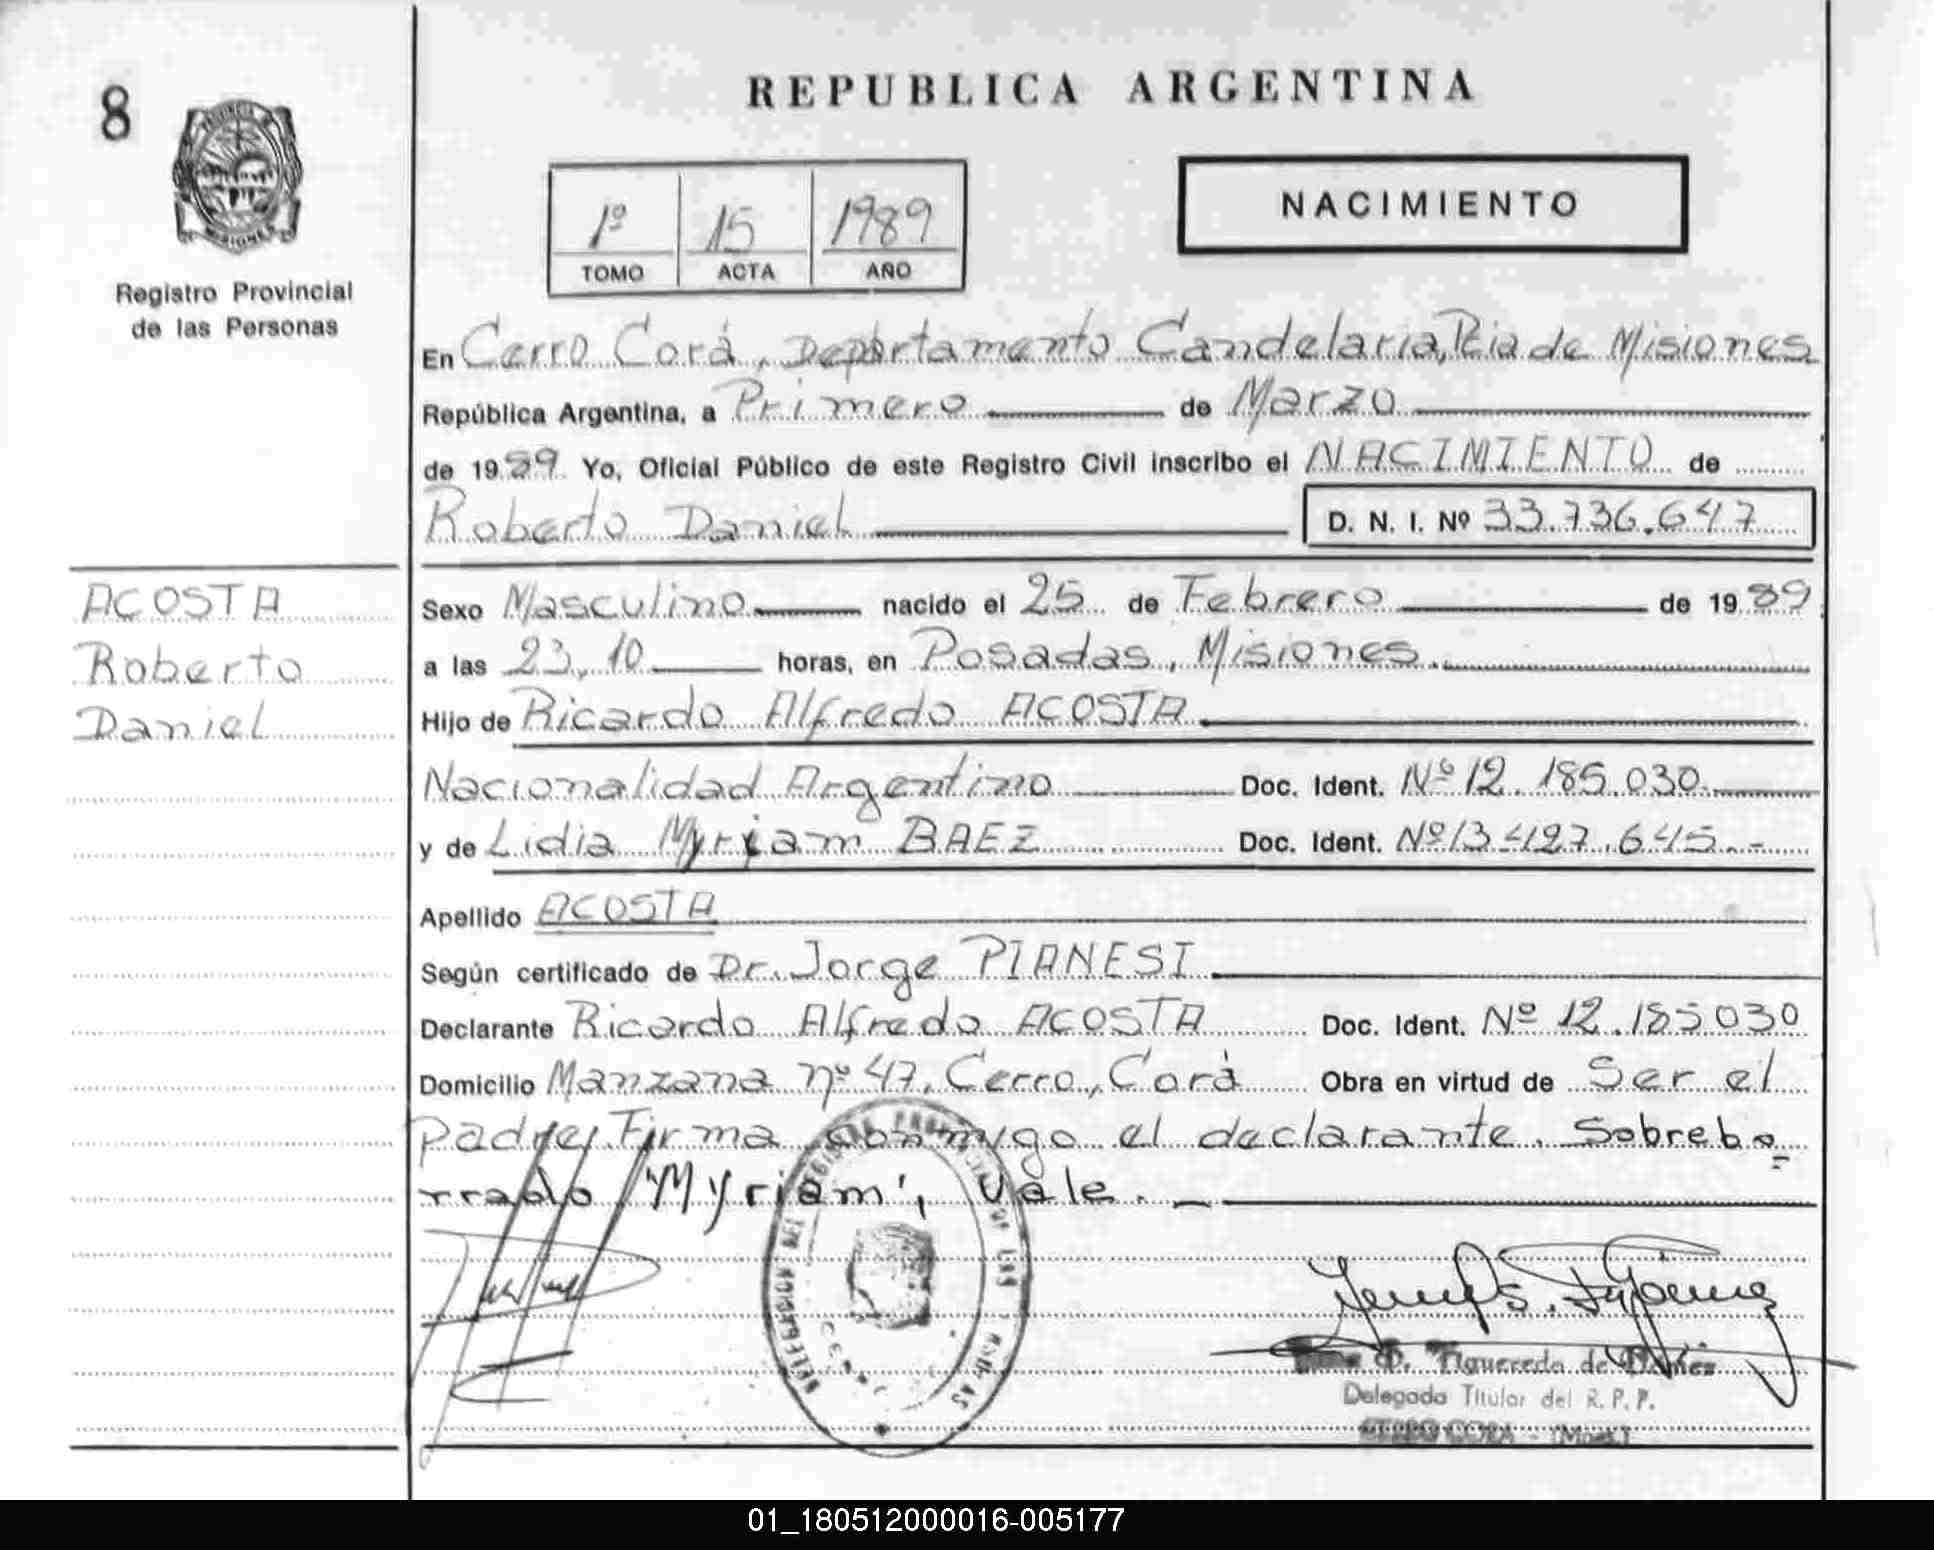 8
PROVINCIA
MISIONES
Registro Provincial
de las Personas
REPUBLICA ARGENTINA
1º 15 1989
TOMO ACTA AÑO
NACIMIENTO
En Cerro Corá, Departamento Candelaria, Pcia de Misiones
República Argentina, a Primero de Marzo
de 1989 Yo, Oficial Público de este Registro Civil inscribo el NACIMIENTO de
Roberto Daniel D. N. I. Nº 33.736.647
ACOSTA
Roberto
Daniel
Sexo Masculino nacido el 25 de Febrero de 1989
a las 23,10 horas, en Posadas, Misiones.
Hijo de Ricardo Alfredo ACOSTA
Nacionalidad Argentino Doc. Ident. Nº 12.185.030.
y de Lidia Myriam BAEZ Doc. Ident. Nº 13.427.645.-
Apellido ACOSTA
Según certificado de Dr. Jorge PIANESI
Declarante Ricardo Alfredo ACOSTA Doc. Ident. Nº 12.185.030
Domicilio Manzana nº 47, Cerro, Corá Obra en virtud de Ser el
padre, Firma conmigo el declarante. Sobrebo
rrado "Myriam", Vale.-
D. Figueredo de
Delegada Titular del R. P. P.
CERRO CORA - (Mnes.)
01_180512000016-005177